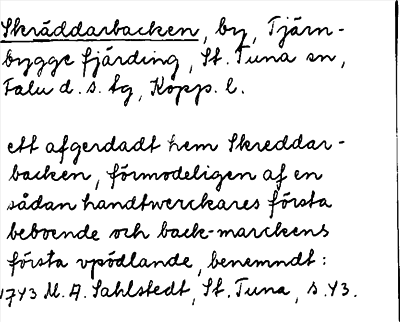 Skräddarbacken, by, Tjärn-
bygge fjärding, St. Tuna sn,
Falu d. s. tg, Kopp. l.
ett afgerdadt hem Skreddar-
backen, förmodeligen af en
sådan handtwerckares första
beboende och back-marckens
första vpödlande, benemndt:
1743 M. A. Sahlstedt, St. Tuna, s. 43.